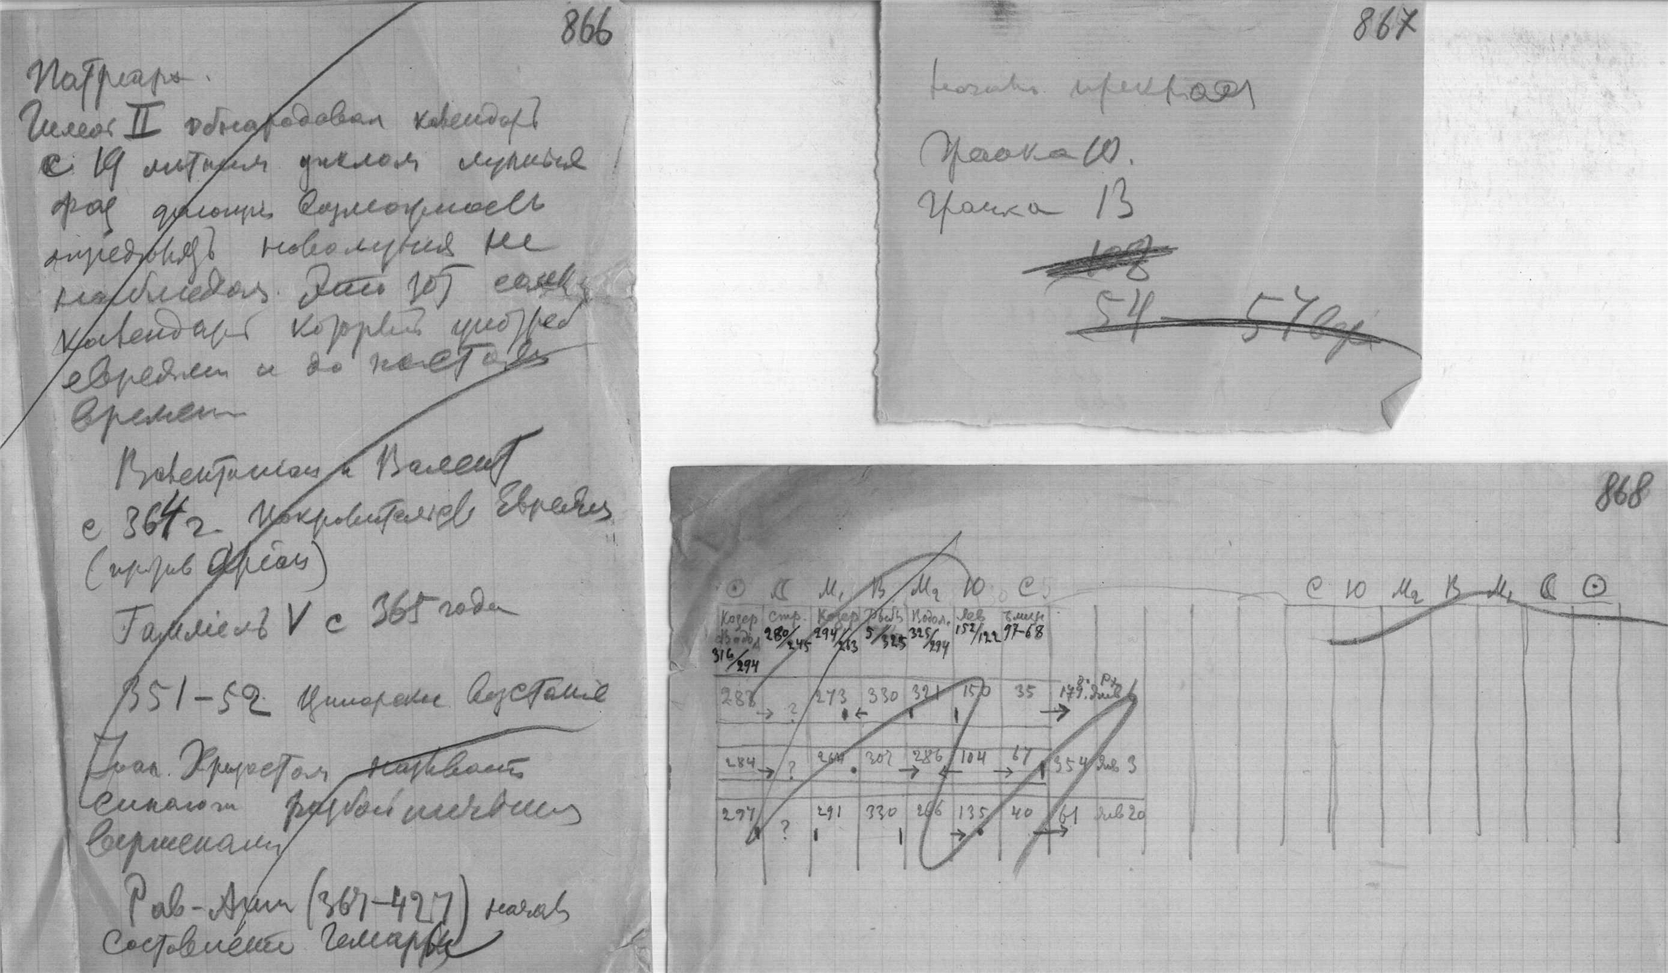 866
Патриарх
Гилел II обнародовал календарь
с 19 летним циклом лунных
фаз дающим возможность
определять новолуния не
наблюдая. Это тот самый
календарь который употреб
евреями и до настоящ
времени
Валентиниан и Валент
с 364 г. покровители Евреям
(против Ариан)
Гамлиель V с 365 года
351-52 Ципорское восстание
Иоан. Хризостом называет
синагоги разбойничьими
вертепами
Рав-Аши (367-427) начав
составление Гемары
867
прекрасн
Гранка 10.
Гранка 13
108
54 — 57
868
☉ ☾ М1 В М2 Ю С
Козер Водол 316/294
Стр. 280/245
Козер 294/263
Рыбы 5/325
Водол. 325/294
Лев 152/122
Близн. 97-68
288 → ? 273 330 321 150 35 → 179
284 → ? 264 302 286 104 67 354 Янв 3
297 ? 291 330 266 135 40 → 61 Янв 20
С Ю М2 В М1 ☾ ☉